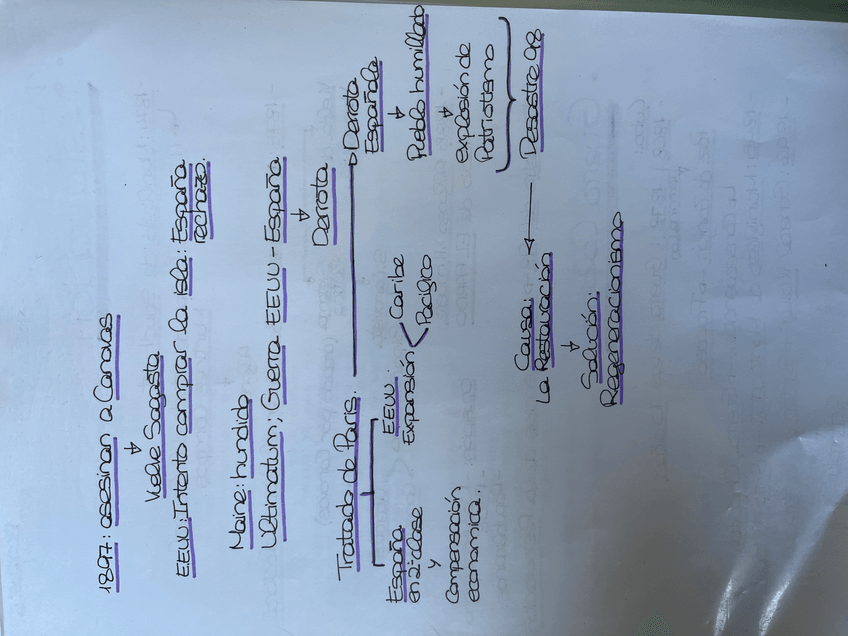 1897: asesinan a Canovas
Vuelve Sagasta
EEUU: Intento comprar la isla: España
rechazo.
Maine: hundido
Ultimatum; Guerra EEUU - España
Derrota
Tratado de Paris.
Derrota
Española
Pueblo humillado
explosión de
Patriotismo
Desastre 98
España
en 2ª clase
y
Compensación
economica.
EEUU.
Expansión
Caribe
Pacífico
Causa:
La Restauración
Solución:
Regeneracionismo